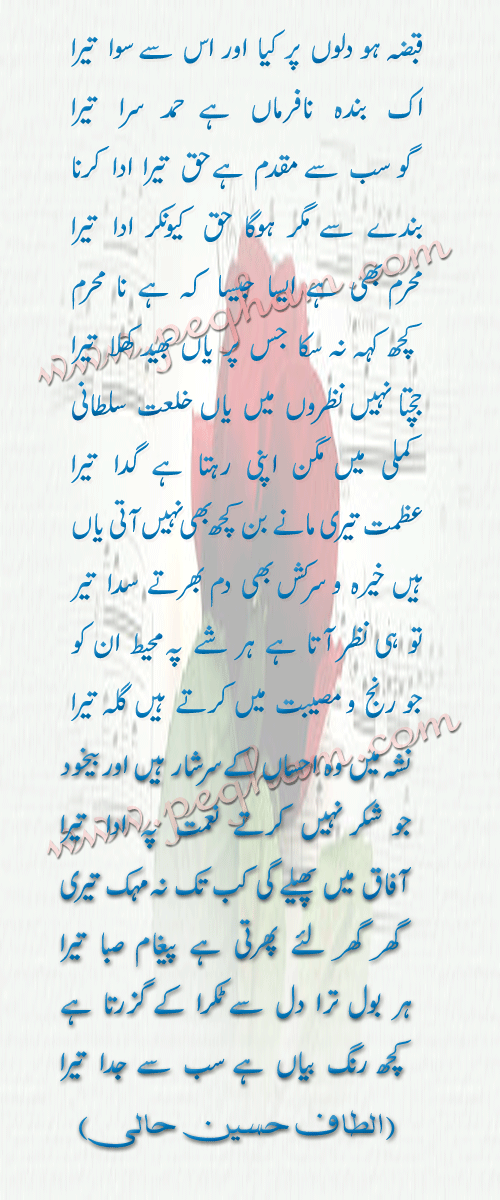 قبضہ ہو دلوں پر کیا اور اس سے سوا تیرا
اک بندہ نافرماں ہے حمد سرا تیرا
گو سب سے مقدم ہے حق تیرا ادا کرنا
بندے سے مگر ہوگا حق کیونکر ادا تیرا
محرم بھی ہے ایسا جیسا کہ ہے نا محرم
کچھ کہہ نہ سکا جس پر یاں بھید کھلا تیرا
www.pegham.com
جچتا نہیں نظروں میں یاں خلعت سلطانی
کملی میں مگن اپنی رہتا ہے گدا تیرا
عظمت تیری مانے بن کچھ بھی نہیں آتی یاں
ہیں خیرہ و سرکش بھی دم بھرتے سدا تیر
تو ہی نظر آتا ہے ہر شے پہ محیط ان کو
جو رنج و مصیبت میں کرتے ہیں گلہ تیرا
نشہ میں وہ احساں کے سرشار ہیں اور بیخود
جو شکر نہیں کرتے نعمت پہ ادا تیرا
www.pegham.com
آفاق میں پھیلے گی کب تک نہ مہک تیری
گھر گھر لئے پھرتی ہے پیغام صبا تیرا
ہر بول ترا دل سے ٹکرا کے گزرتا ہے
کچھ رنگ بیاں ہے سب سے جدا تیرا
(الطاف حسین حالی)